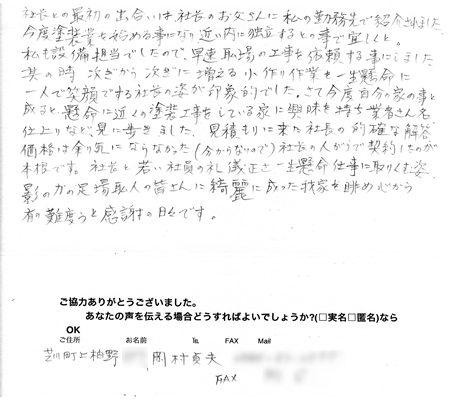 社長との最初の出合いは社長のお父さんに私の勤務先で紹介されました
今度塗装業を始める事になり近い内に独立するとの事で宜しくと。
私も設備担当でしたので、早速職場の工事を依頼する事にしました
其の時 次ぎから次ぎに増える小作り作業を一生懸命に
一人で笑顔でする社長の姿が印象的でした。さて今度自分の家の事と
成ると、懸命に近くの塗装工事をしている家に興味を持ち業者さん名
仕上りなど、見に歩きました、見積もりに来た社長の的確な解答
価格は余り気にならなかった(分からないので)社長の人がらで契約したのが
本根です。社長と若い社員の礼儀正さ一生懸命仕事に取りくむ姿、
影の力の足場職人の皆さんに綺麗に成った我家を眺め心から
有難度うと感謝の日々です。
ご協力ありがとうございました。
あなたの声を伝える場合どうすればよいでしょうか?(□実名□匿名)なら
OK
ご住所 お名前 ℡ FAX Mail
芝川町上柏野 岡村貞夫
FAX